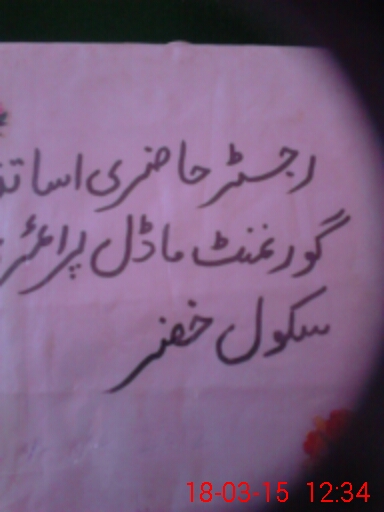 رجسٹر حاضری اساتذ
گورنمنٹ ماڈل پرائمری
سکول خضر
18-03-15 12:34